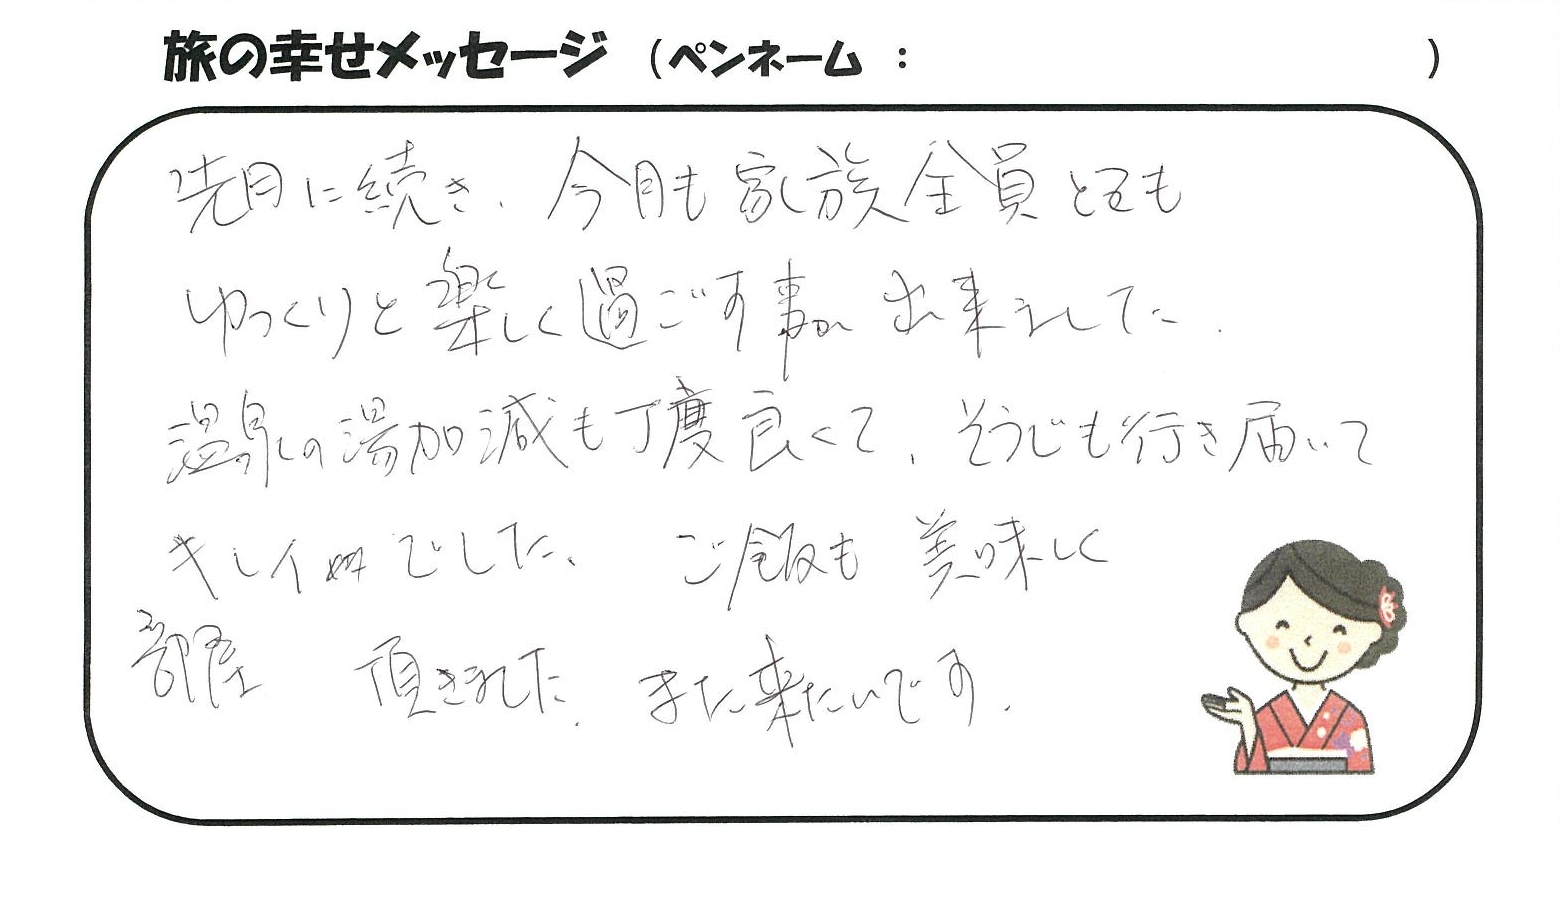 旅の幸せメッセージ (ペンネーム : )
先月に続き、今月も家族全員とても
ゆっくりと楽しく過ごす事が出来ました。
温泉の湯加減も丁度良くて、そうじも行き届いて
キレイでした。 ご飯も美味しく
部屋 頂きました。また来たいです。